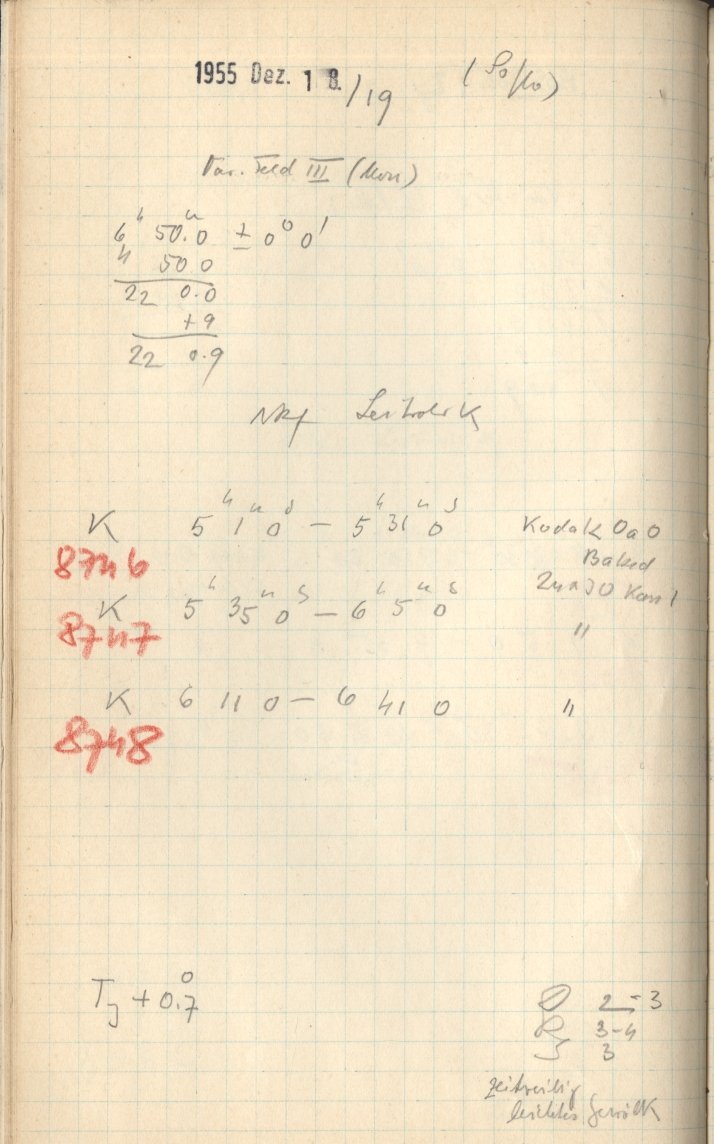 1955 Dez. 18./19 (So/Mo)
Var. Feld III (Mon)
6h 50.m0 ± 0° 0'
4 50 0
22 0.0
+9
22 0.9
K 5h 1m 0s – 5h 31m 0s Kodak OaO
8746 Baked
K 5h 35m 0s – 6h 5m 0s
8747 "
K 6 11 0 – 6 41 0 "
8748
T + 0.°7
2-3
R 3-4
3
zeitweilig
leichtes Gewölk